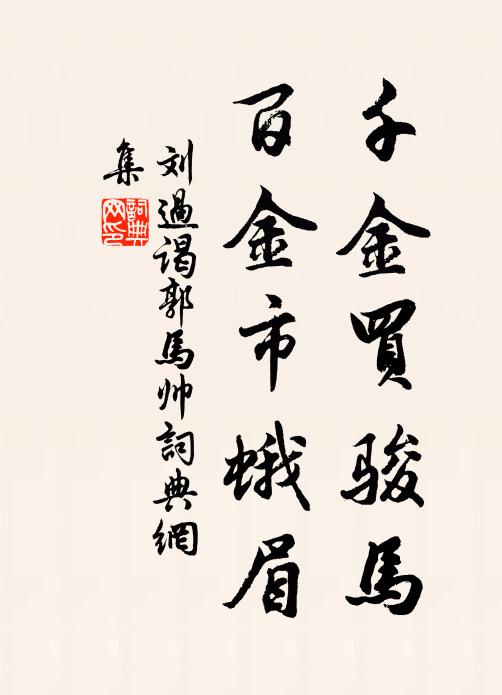 千金買駿馬
百金市蛾眉
刘過谒郭馬帅詞典網
集
詞典網印